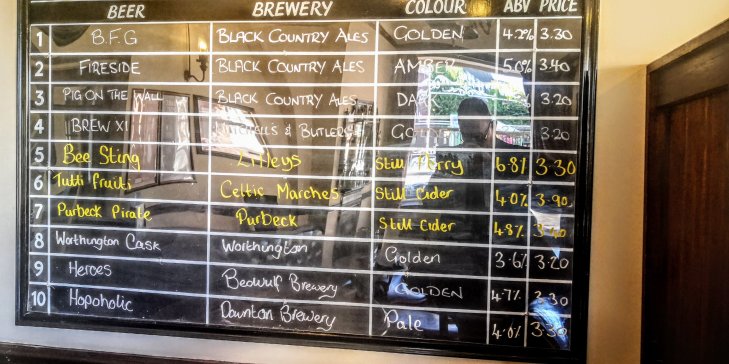 BEER BREWERY COLOUR ABV PRICE
1 B.F.G BLACK COUNTRY ALES GOLDEN 4.2% 3.30
2 FIRESIDE BLACK COUNTRY ALES AMBER 5.0% 3.40
3 PIG ON THE WALL BLACK COUNTRY ALES 3.20
4 BREW XI MITCHELL'S & BUTLERS 3.20
5 Bee Sting Lilleys Still Perry 6.8% 3.30
6 Tutti fruiti Celtic Marches Still Cider 4.0% 3.90
7 Purbeck Pirate Purbeck Still Cider 4.8%
8 Worthington Cask Worthington Golden 3.6% 3.20
9 Heroes Beowulf Brewery GOLDEN 4.7% 3.30
10 Hopoholic Downton Brewery Pale 3.30